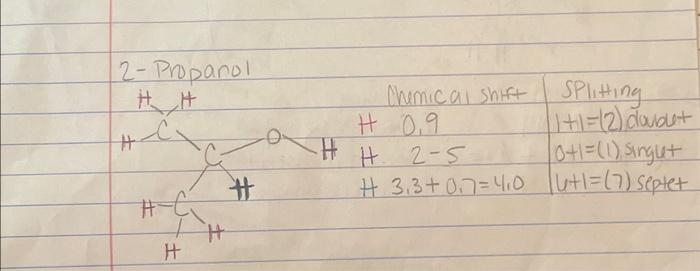 2-Propanol
Chemical shift | Splitting
H 0.9 | 1+1=(2) doublet
H 2-5 | 0+1=(1) singlet
H 3.3+0.7=4.0 | 6+1=(7) septet
H H
H C
C O H
H
H C
H
H